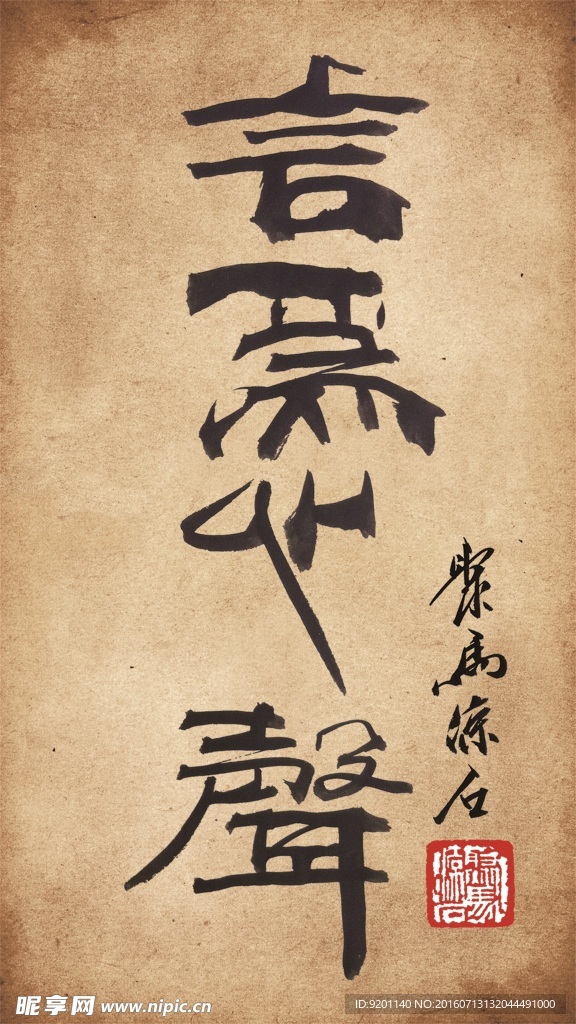 言爲心聲
聚馬涼石
昵享网 www.nipic.cn
ID:9201140 NO:20160713132044491000